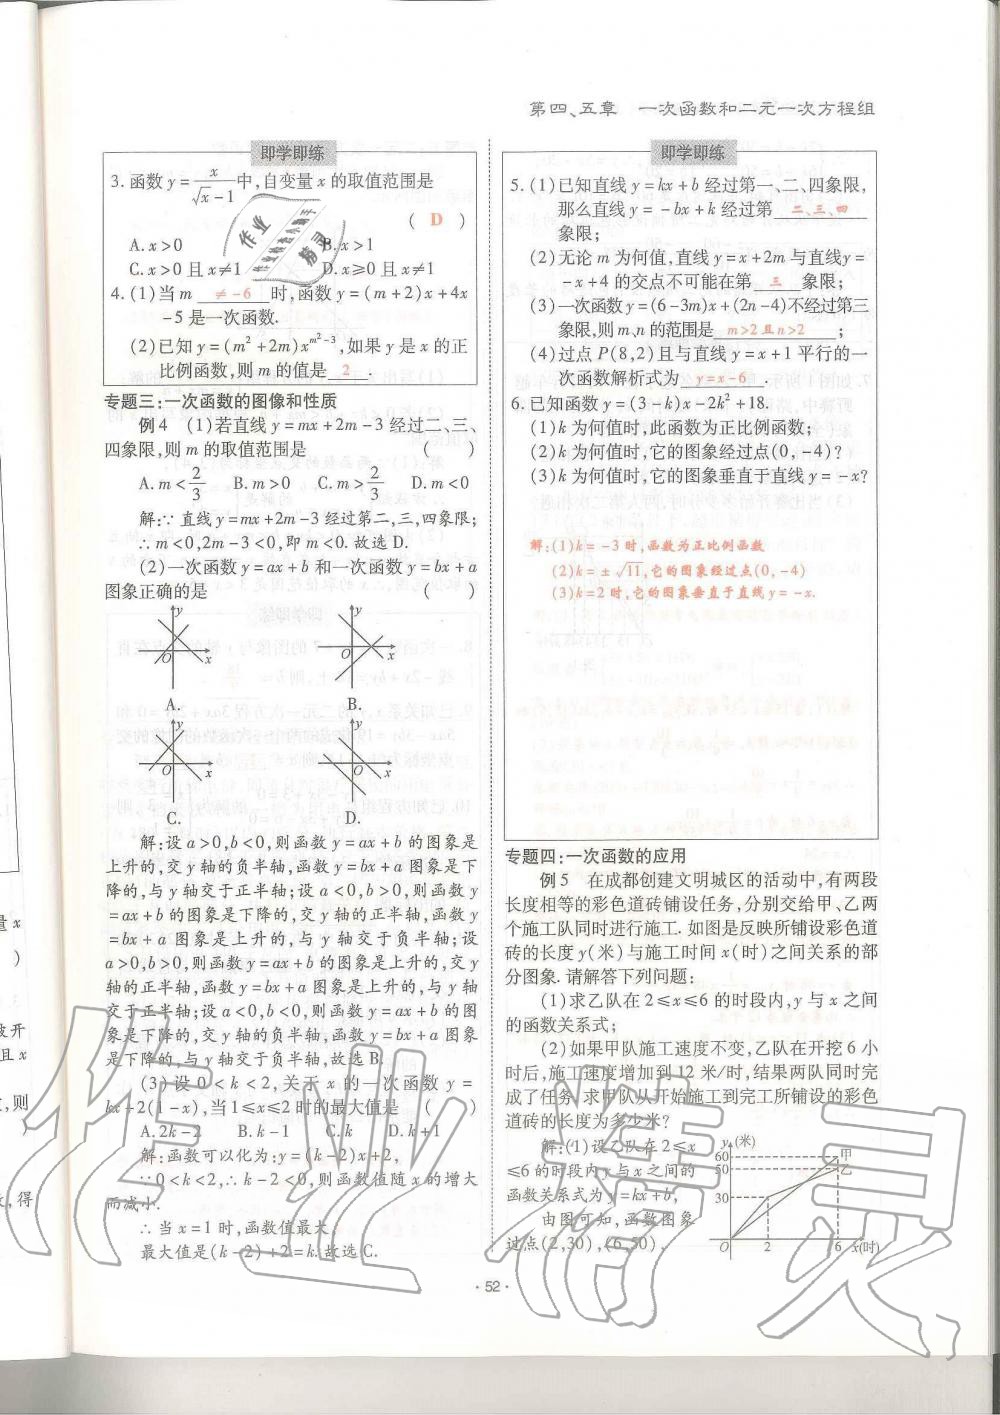 第四、五章　一次函数和二元一次方程组
即学即练
3. 函数 y = x/(√x − 1) 中,自变量 x 的取值范围是
( D )
A. x > 0　B. x > 1
C. x > 0 且 x ≠ 1　D. x ≥ 0 且 x ≠ 1
4. (1) 当 m ≠ -6 时,函数 y = (m + 2)x + 4x
- 5 是一次函数.
(2) 已知 y = (m² + 2m)x^(m²-3),如果 y 是 x 的正
比例函数,则 m 的值是 2 .
专题三:一次函数的图像和性质
例 4　(1) 若直线 y = mx + 2m - 3 经过二、三、
四象限,则 m 的取值范围是　(　)
A. m < 2/3　B. m > 0　C. m > 2/3　D. m < 0
解:∵ 直线 y = mx + 2m - 3 经过第二,三,四象限;
∴ m < 0, 2m - 3 < 0, 即 m < 0. 故选 D.
(2) 一次函数 y = ax + b 和一次函数 y = bx + a
图象正确的是　(　)
y
O
x
A.
y
O
x
B.
y
O
x
C.
y
O
x
D.
解:设 a > 0, b < 0, 则函数 y = ax + b 的图象是
上升的,交 y 轴的负半轴,函数 y = bx + a 图象是下
降的,与 y 轴交于正半轴;设 a < 0, b > 0, 则函数 y
= ax + b 的图象是下降的,交 y 轴的正半轴,函数 y
= bx + a 图象是上升的,与 y 轴交于负半轴;设
a > 0, b > 0, 则函数 y = ax + b 的图象是上升的,交 y
轴的正半轴,函数 y = bx + a 图象是上升的,与 y 轴
交于正半轴;设 a < 0, b < 0, 则函数 y = ax + b 的图
象是下降的,交 y 轴的负半轴,函数 y = bx + a 图象
是下降的,与 y 轴交于负半轴,故选 B.
(3) 设 0 < k < 2, 关于 x 的一次函数 y =
kx + 2(1 - x), 当 1 ≤ x ≤ 2 时的最大值是　(　)
A. 2k - 2　B. k - 1　C. k　D. k + 1
解:函数可以化为:y = (k - 2)x + 2,
∵ 0 < k < 2, ∴ k - 2 < 0, 则函数值随 x 的增大
而减小.
∴ 当 x = 1 时,函数值最大,
最大值是 (k - 2) + 2 = k. 故选 C.
即学即练
5. (1) 已知直线 y = kx + b 经过第一、二、四象限,
那么直线 y = - bx + k 经过第 二、三、四
象限;
(2) 无论 m 为何值,直线 y = x + 2m 与直线 y =
- x + 4 的交点不可能在第 三 象限;
(3) 一次函数 y = (6 - 3m)x + (2n - 4) 不经过第三
象限,则 m、n 的范围是 m > 2 且 n > 2 ;
(4) 过点 P(8,2) 且与直线 y = x + 1 平行的一
次函数解析式为 y = x - 6 .
6. 已知函数 y = (3 + k)x - 2k² + 18.
(1) k 为何值时,此函数为正比例函数;
(2) k 为何值时,它的图象经过点(0, - 4)?
(3) k 为何值时,它的图象垂直于直线 y = - x?
解:(1) k = - 3 时,函数为正比例函数
(2) k = ± √11, 它的图象经过点(0, - 4)
(3) k = 2 时,它的图象垂直于直线 y = - x.
专题四:一次函数的应用
例 5　在成都创建文明城区的活动中,有两段
长度相等的彩色道砖铺设任务,分别交给甲、乙两
个施工队同时进行施工. 如图是反映所铺设彩色道
砖的长度 y(米)与施工时间 x(时)之间关系的部
分图象. 请解答下列问题:
(1) 求乙队在 2 ≤ x ≤ 6 的时段内, y 与 x 之间
的函数关系式;
(2) 如果甲队施工速度不变,乙队在开挖 6 小
时后,施工速度增加到 12 米/时,结果两队同时完
成了任务. 求甲队从开始施工到完工所铺设的彩色
道砖的长度为多少米?
解:(1) 设乙队在 2 ≤ x
≤ 6 的时段内 y 与 x 之间的
函数关系式为 y = kx + b,
由图可知,函数图象
过点(2,30),(6,50),
y(米)
60
50
30
甲
乙
O
2
6
x(时)
· 52 ·
作业精灵